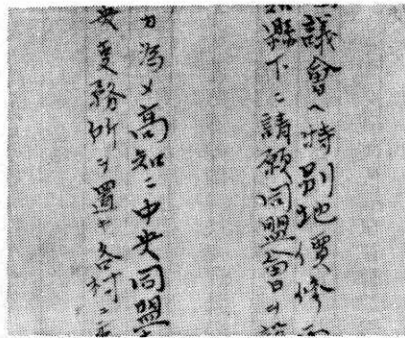 議會ヘ特別地價修正
縣下ニ請願同盟會ヲ設
カ為メ高知ニ中央同盟
央事務所ヲ置キ各村ニ